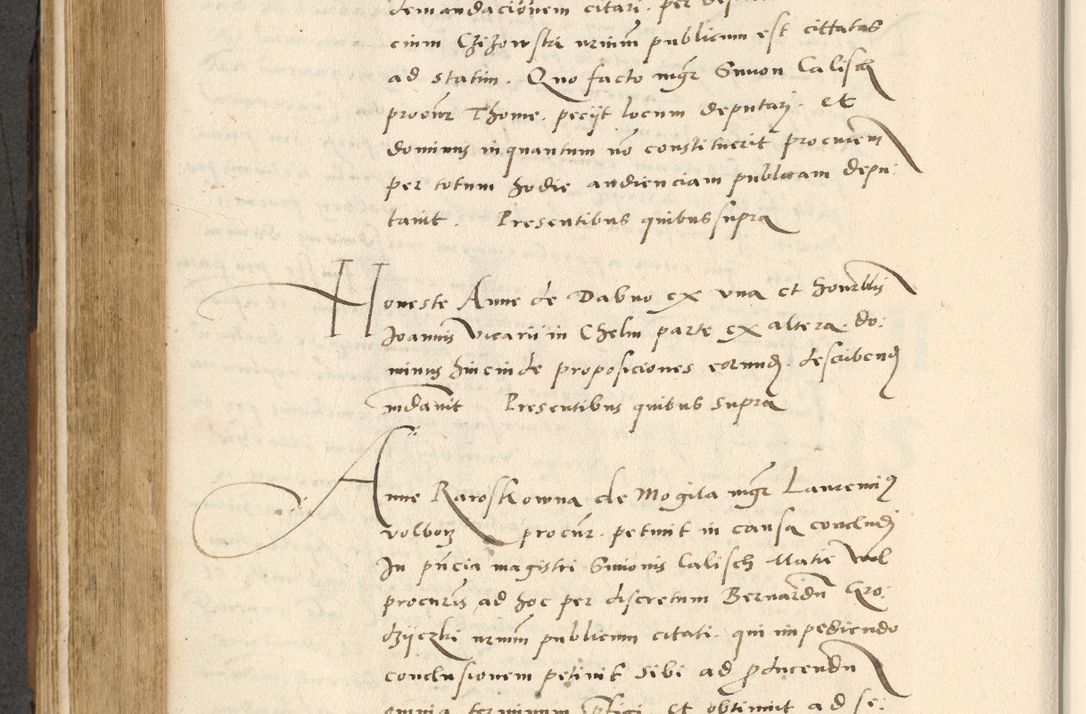 demandacionem citari per
cium Czizowski nrium publicum est cittatus
ad statim. Quo facto mgr Simon Calisch
procur Thome. pecijt locum deputarj. Et
dominus inquantum no constituerit procurem
per totum hodie audienciam publicam depu-
tauit. Presentibus quibus supra
Honeste Anne de Dabno ex vna et honrblis
Joannis vicarii in Chelm parte ex altera. do-
minus hincinde proposiciones eorund describend
mdauit Presentibus quibus supra
Anne Raroskowna de Mogila mgr Laurencius
volborz procur. petiuit in causa concludj
In pncia magistri Simonis Calisch Matie
procuris ad hoc per discretum Bernardu Gro-
dzyczki nrium publicum citati. qui impediendo
conclusionem petiuit sibi ad producendu
omnia terminum p̃figi. Et obtinuit ad se-